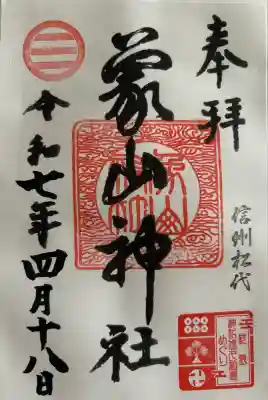 奉拝
信州松代
象山神社
令和七年四月十八日